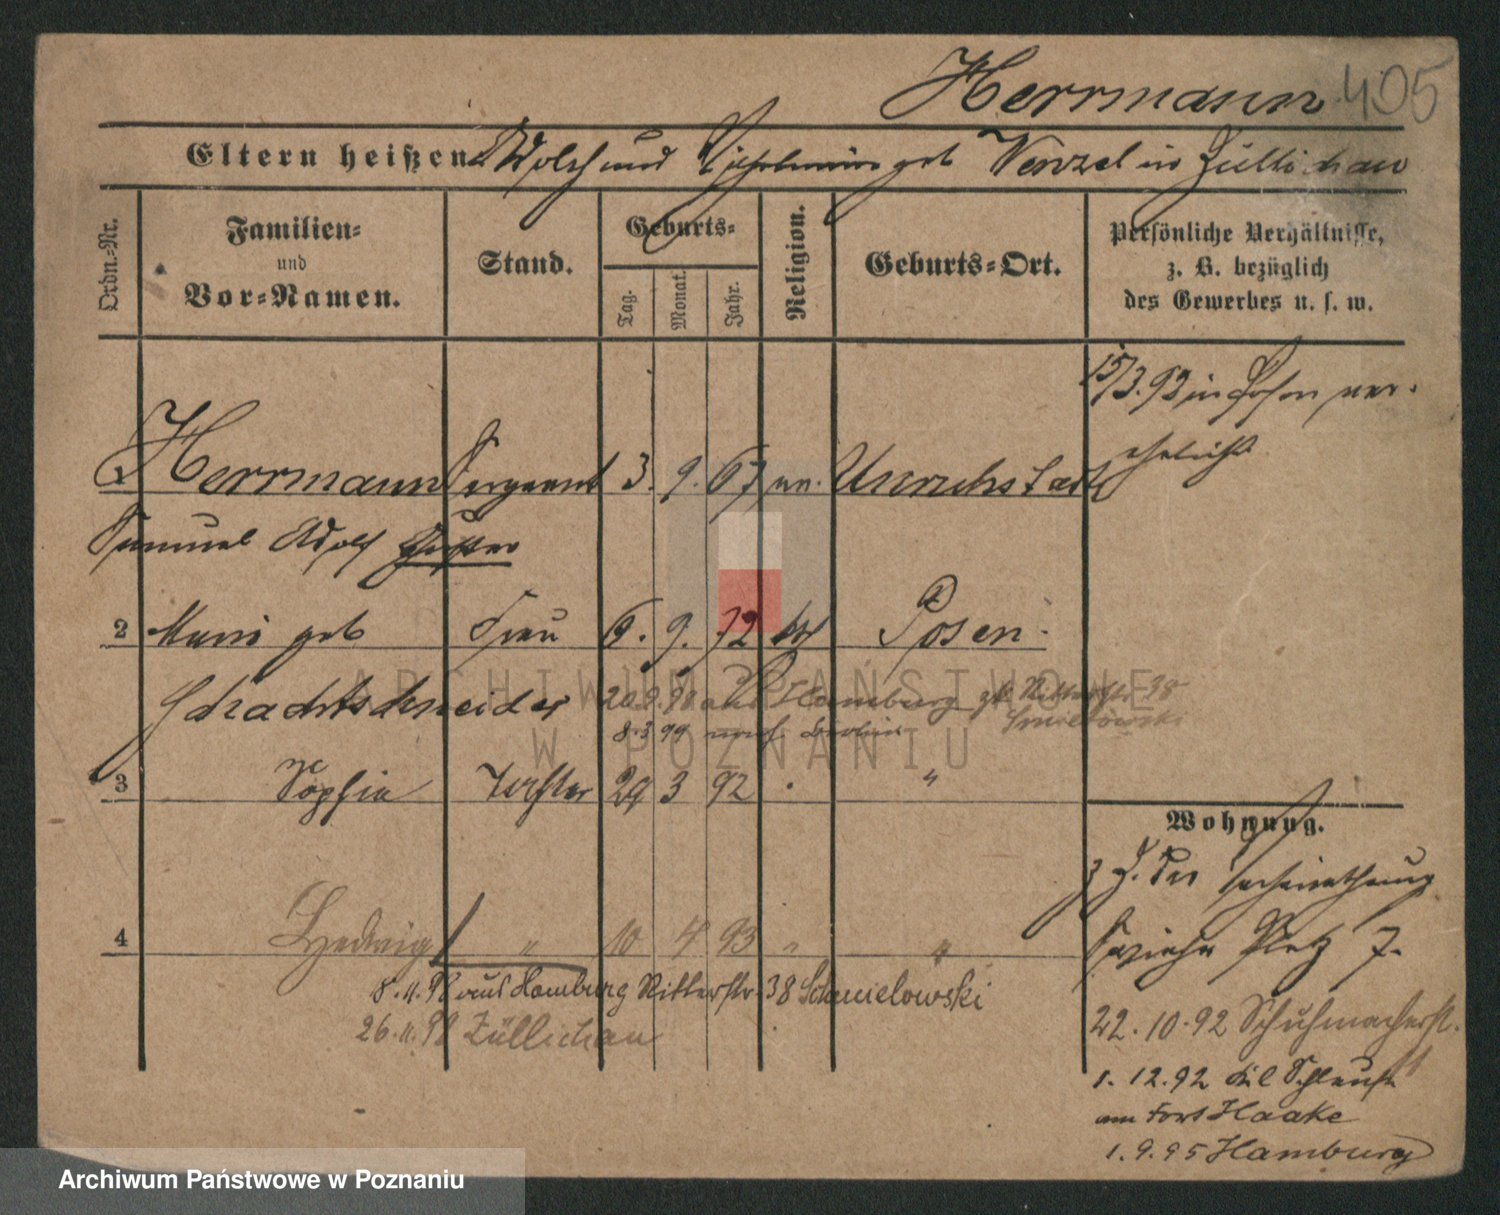 Herrmann 405
Eltern heißen Adolf und Wilhelmine geb Wenzel in Züllichau
Ordn.-Nr.
Familien-
und
Vor-Namen.
Stand.
Geburts-
Tag.
Monat.
Jahr.
Religion.
Geburts-Ort.
Persönliche Verhältnisse,
z. B. bezüglich
des Gewerbes u. s. w.
15/3.92 in Posen ver-
ehelicht
1 Herrmann Sergeant 3. 9. 67 ev. Unruhstadt
Samuel Adolf Gustav
2 Marie geb Frau 6. 9. 72 Posen
Schachtschneider 20.9.98 aus Hamburg Ritterstr 38
Smielowski
8.3 99 nach Berlin
3 Sophie Tochter 29 3 92 . "
Wohnung.
z. Z. der
Platz 7.
4 Hedwig " 10 4 93 " "
8.11.98 aus Hamburg Ritterstr. 38 Schmielowski
26.11.98 Züllichau
22.10.92 Schuhmacherst.
1.12.92 Schleuse
am Fort Haake
1.9.95 Hamburg
ARCHIWUM PAŃSTWOWE
W POZNANIU
Archiwum Państwowe w Poznaniu